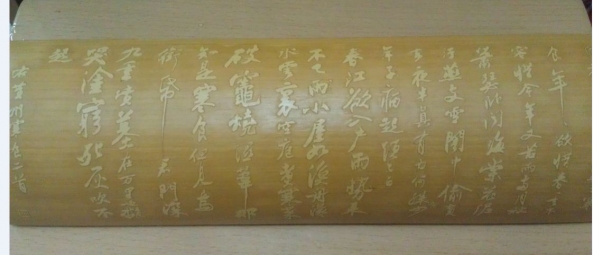 食年年欲惜春春去不
容惜今年又苦雨兩月秋
蕭瑟臥聞海棠花泥
汙燕支雪闇中偷負
去夜半真有力何殊病
年子病起頭已白
春江欲入戶雨勢來
不已雨小屋如漁舟濛濛
水雲裏空庖煮寒菜
破竈燒濕葦那
知是寒食但見烏
銜帋 君門深
九重墳墓在万里也擬
哭塗窮死灰吹不
起
右黃州寒食二首